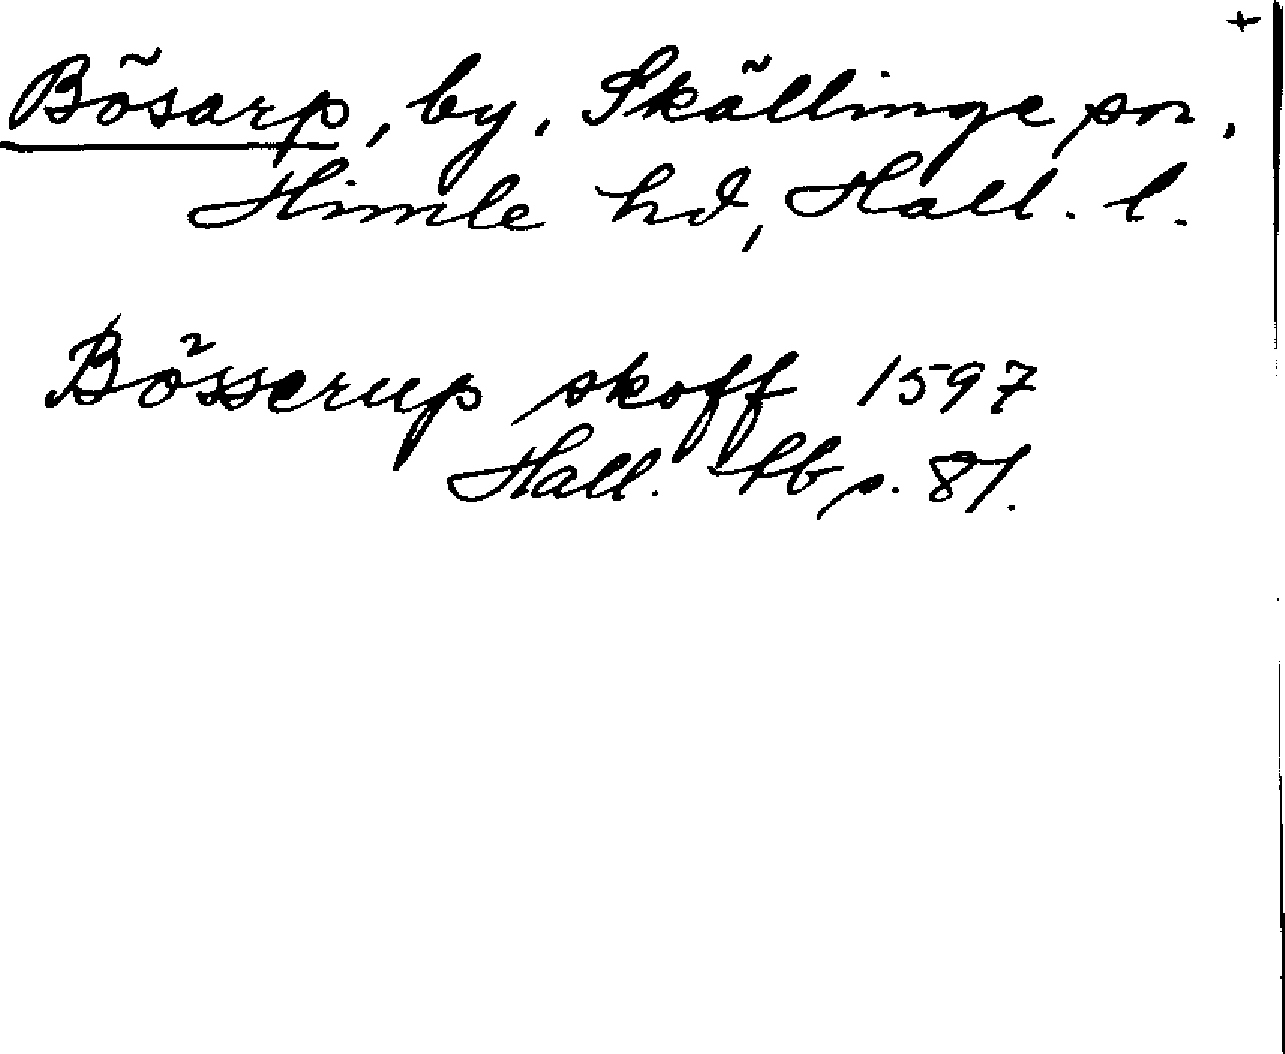 +
Bösarp, by, Skällinge sn,
Himle hd, Hall. l.
Bösserup skoff 1597
Hall. lb p. 81.